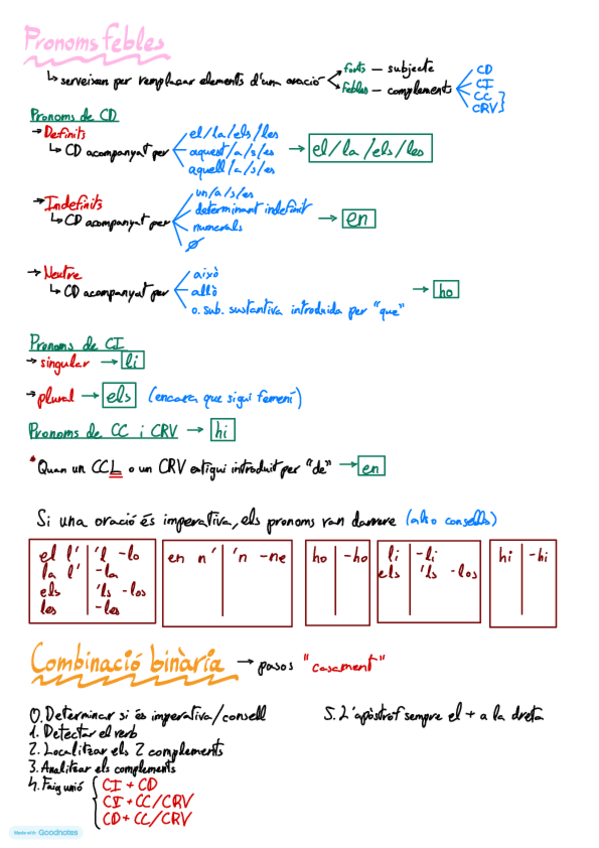 Pronoms febles
↳ serveixen per remplaçar elements d'una oració
forts – subjecte
febles – complements
CD
CI
CC
CRV
Pronoms de CD
→ Definits
↳ CD acompanyat per
el/la/els/les
aquest/a/s/es
aquell/a/s/es
→ el/la/els/les
→ Indefinits
↳ CD acompanyat per
un/a/s/es
determinant indefinit
numerals
Ø
→ en
→ Neutre
↳ CD acompanyat per
això
allò
o. sub. sustantiva introduida per "que"
→ ho
Pronoms de CI
→ singular → li
→ plural → els (encara que sigui femení)
Pronoms de CC i CRV → hi
*Quan un CCL o un CRV estigui introduit per "de" → en
Si una oració és imperativa, els pronoms van darrere (alto consells)
el l' | 'l -lo
la l' | -la
els | 'ls -los
les | -les
en n' | 'n -ne
ho | -ho
li | -li
els | 'ls -los
hi | -hi
Combinació binària → pasos "casament"
0. Determinar si és imperativa/consell
1. Detectar el verb
2. Localitzar els 2 complements
3. Analitzar els complements
4. Faig unió
CI + CD
CI + CC/CRV
CD + CC/CRV
5. L'apòstrof sempre el + a la dreta
Made with Goodnotes